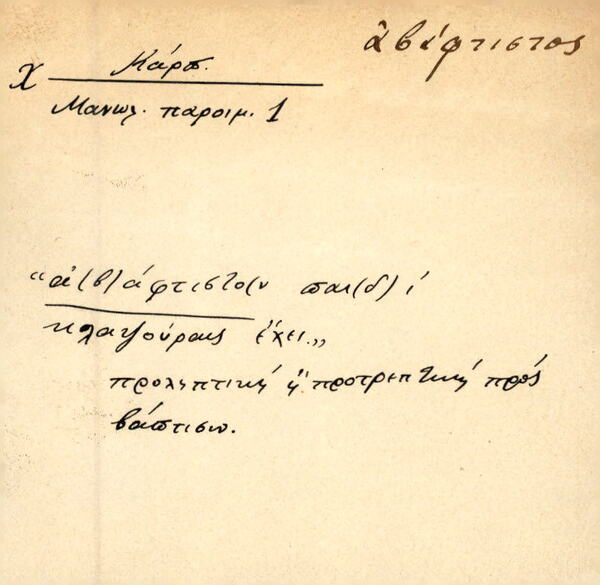 ἀβάφτιστος
χ Κάρπ.
Μανωλ. παροιμ. 1
"ἀ(β)άφτιστο(ν παι(δ)ί
κλαψούραις ἔχει„
προληπτική ἤ προτρεπτική πρός
βάπτισιν.